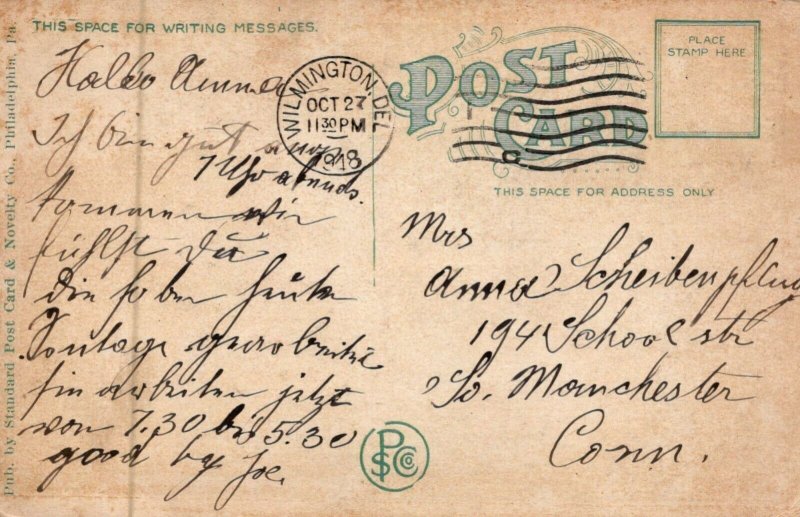 THIS SPACE FOR WRITING MESSAGES.
Hallo Anna
Ich bin gut
7 Uhr abends.
kommen wir
fühlst Du
die haben heute
Sontage gearbeitet
sin arbeiten jetzt
von 7.30 bis 5.30
good by Joe.
Pub. by Standard Post Card & Novelty Co., Philadelphia, Pa.
WILMINGTON, DEL
OCT 27
11 30 PM
1918
POST CARD
PLACE
STAMP HERE
THIS SPACE FOR ADDRESS ONLY
Mrs
Anna Scheibenpflug
194 School str
So. Manchester
Conn.
PSCCo